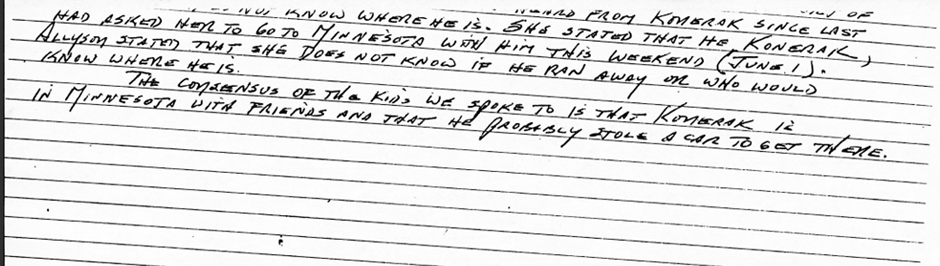 NOT KNOW WHERE HE IS. HEARD FROM KONERAK SINCE LAST
HAD ASKED HER TO GO TO MINNESOTA WITH HIM THIS WEEKEND (JUNE 1).
SHE STATED THAT HE, KONERAK,
ALLYSON STATED THAT SHE DOES NOT KNOW IF HE RAN AWAY OR WHO WOULD
KNOW WHERE HE IS.
THE CONSENSUS OF THE KIDS WE SPOKE TO IS THAT KONERAK IS
IN MINNESOTA WITH FRIENDS AND THAT HE PROBABLY STOLE A CAR TO GET THERE.